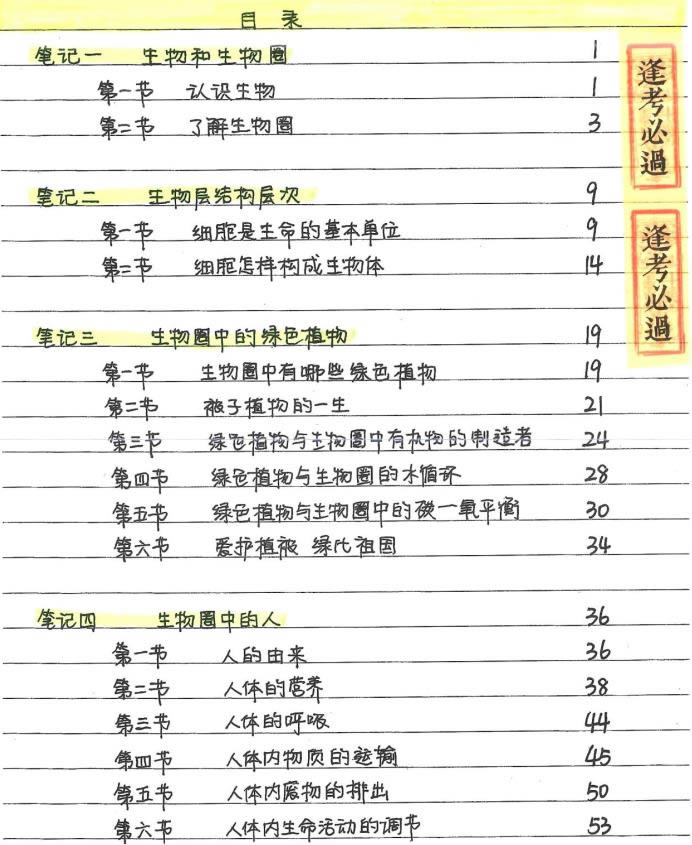 目录
笔记一 生物和生物圈 1
第一节 认识生物 1
第二节 了解生物圈 3
逢考必過
笔记二 生物层结构层次 9
第一节 细胞是生命的基本单位 9
第二节 细胞怎样构成生物体 14
逢考必過
笔记三 生物圈中的绿色植物 19
第一节 生物圈中有哪些绿色植物 19
第二节 被子植物的一生 21
第三节 绿色植物与生物圈中有机物的制造者 24
第四节 绿色植物与生物圈的水循环 28
第五节 绿色植物与生物圈中的碳一氧平衡 30
第六节 爱护植被 绿化祖国 34
笔记四 生物圈中的人 36
第一节 人的由来 36
第二节 人体的营养 38
第三节 人体的呼吸 44
第四节 人体内物质的运输 45
第五节 人体内废物的排出 50
第六节 人体内生命活动的调节 53